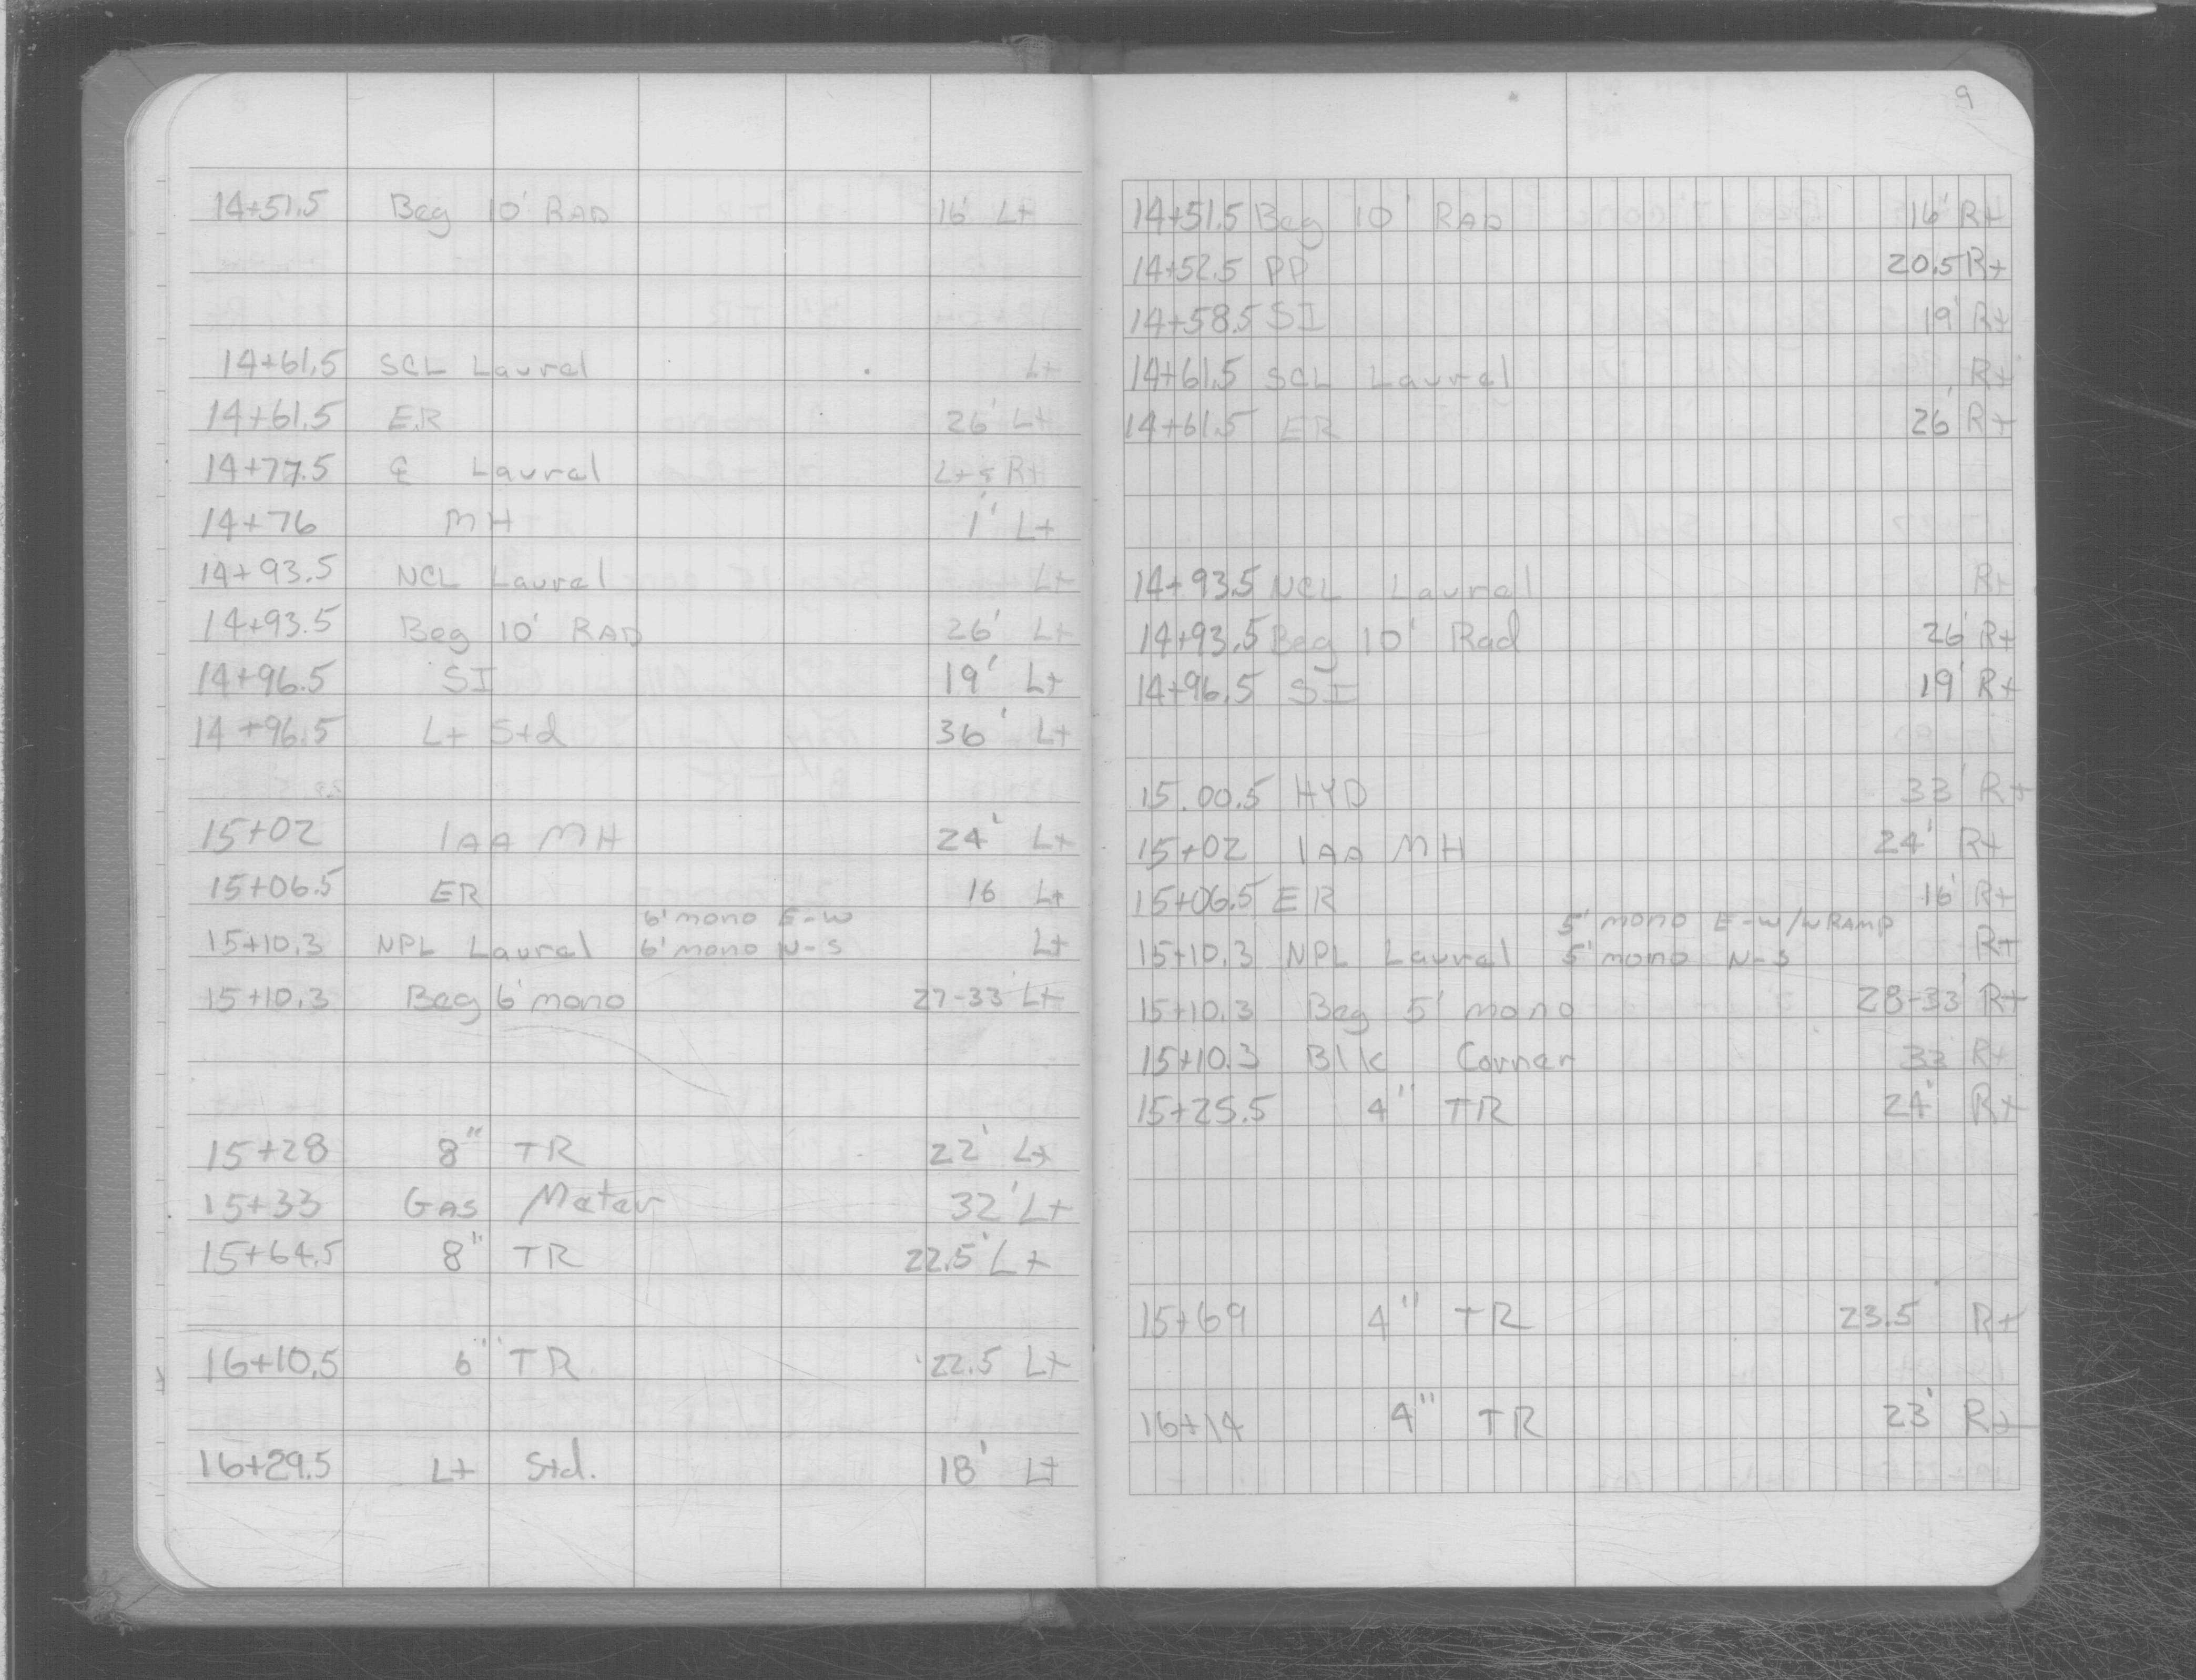 14+51.5 Beg 10' RAD 16' Lt
14+61.5 SCL Laurel Lt
14+61.5 ER 26' Lt
14+77.5 ℄ Laurel Lt & Rt
14+76 MH 1' Lt
14+93.5 NCL Laurel Lt
14+93.5 Beg 10' RAD 26' Lt
14+96.5 SI 19' Lt
14+96.5 Lt Std 36' Lt
15+02 1AA MH 24' Lt
15+06.5 ER 16 Lt
6' mono E-W
15+10.3 NPL Laurel 6' mono N-S Lt
15+10.3 Beg 6' mono 27-33 Lt
15+28 8" TR 22' Lt
15+33 GAS Meter 32' Lt
15+64.5 8" TR 22.5' Lt
16+10.5 6" TR 22.5 Lt
16+29.5 Lt Std. 18' Lt
9
14+51.5 Beg 10' RAD 16' Rt
14+52.5 PP 20.5 Rt
14+58.5 SI 19' Rt
14+61.5 SCL Laurel Rt
14+61.5 ER 26' Rt
14+93.5 NCL Laurel Rt
14+93.5 Beg 10' Rad 26' Rt
14+96.5 SI 19' Rt
15.00.5 HYD 33' Rt
15+02 1AA MH 24' Rt
15+06.5 ER 16' Rt
5' mono E-W/W RAMP
15+10.3 NPL Laurel 5' mono N-S Rt
15+10.3 Beg 5' mono 28-33' Rt
15+10.3 Blk Corner 33' Rt
15+25.5 4" TR 24' Rt
15+69 4" TR 23.5' Rt
16+14 4" TR 23' Rt